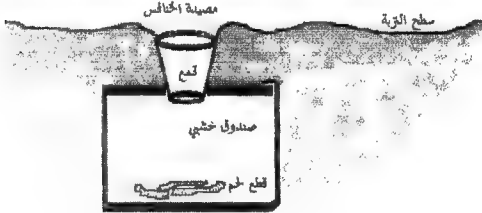 مصيدة الخنافس
سطح التربة
قمع
صندوق خشبي
قطع لحم